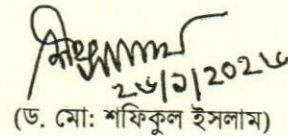 ২৬/১/২০২৬
(ড. মো: শফিকুল ইসলাম)